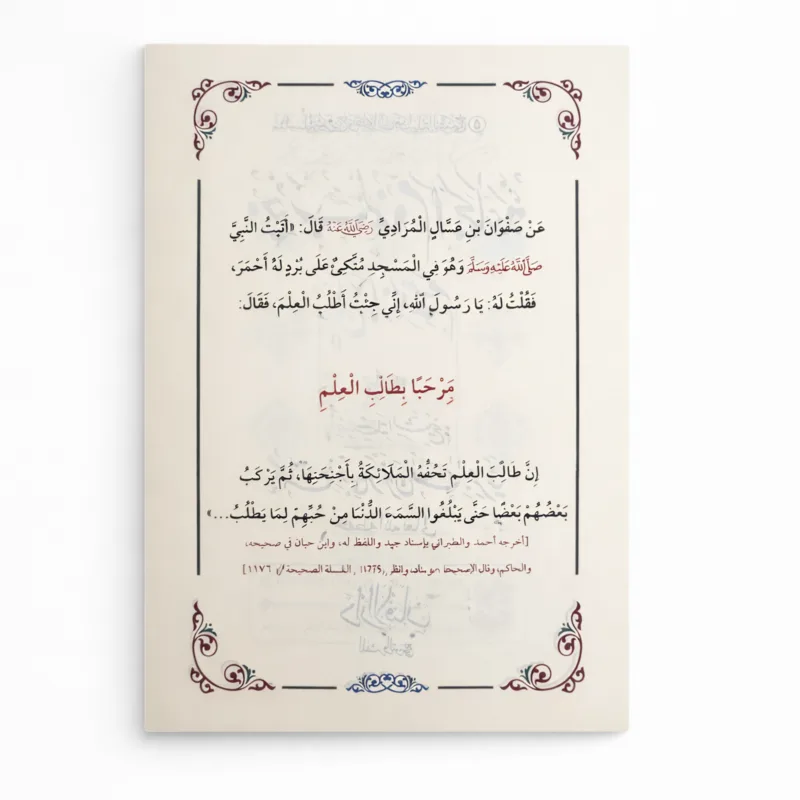 عَنْ صَفْوَانَ بْنِ عَسَّالٍ الْمُرَادِيِّ رَضِيَ اللَّهُ عَنْهُ قَالَ: «أَتَيْتُ النَّبِيَّ
صَلَّى اللَّهُ عَلَيْهِ وَسَلَّمَ وَهُوَ فِي الْمَسْجِدِ مُتَّكِئٌ عَلَى بُرْدٍ لَهُ أَحْمَرَ،
فَقُلْتُ لَهُ: يَا رَسُولَ اللهِ، إِنِّي جِئْتُ أَطْلُبُ الْعِلْمَ، فَقَالَ:
مَرْحَبًا بِطَالِبِ الْعِلْمِ
إِنَّ طَالِبَ الْعِلْمِ تَحُفُّهُ الْمَلَائِكَةُ بِأَجْنِحَتِهَا، ثُمَّ يَرْكَبُ
بَعْضُهُمْ بَعْضًا حَتَّى يَبْلُغُوا السَّمَاءَ الدُّنْيَا مِنْ حُبِّهِمْ لِمَا يَطْلُبُ...»
[أخرجه أحمد والطبراني بإسناد جيد واللفظ له، وابن حبان في صحيحه،
والحاكم، وقال ١١٧٦]